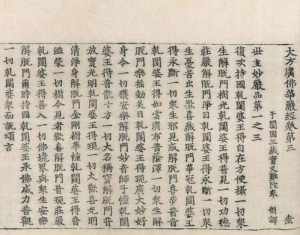 大方廣佛華嚴經卷第三
于闐國三藏實叉難陀奉 制譯
世主妙嚴品第一之三
復次持國乾闥婆王得自在方便攝一切眾
生解脫門樹光乾闥婆王得普見一切功德
莊嚴解脫門淨目乾闥婆王得永斷一切眾
生憂苦出生歡喜藏解脫門華冠乾闥婆王
得永斷一切眾生邪見惑解脫門喜步普音
乾闥婆王得如雲廣布普蔭澤一切眾生解
脫門樂搖動美目乾闥婆王得現廣大妙好
身令一切獲安樂解脫門妙音師子幢乾闥
婆王得普散十方一切大名稱寶解脫門普
放寶光明乾闥婆王得現一切大歡喜光明
清淨身解脫門金剛樹華幢乾闥婆王得普
滋榮一切樹令見者歡喜解脫門普現莊嚴
乾闥婆王得善入一切佛境界與眾生安樂
解脫門爾時持國乾闥婆王承佛威力普觀
一切乾闥婆眾而說頌言